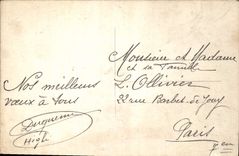 Nos meilleurs
vœux à tous
Monsieur et Madame
et sa famille
L. Ollivier
22 rue Barbet de Jouy
Paris